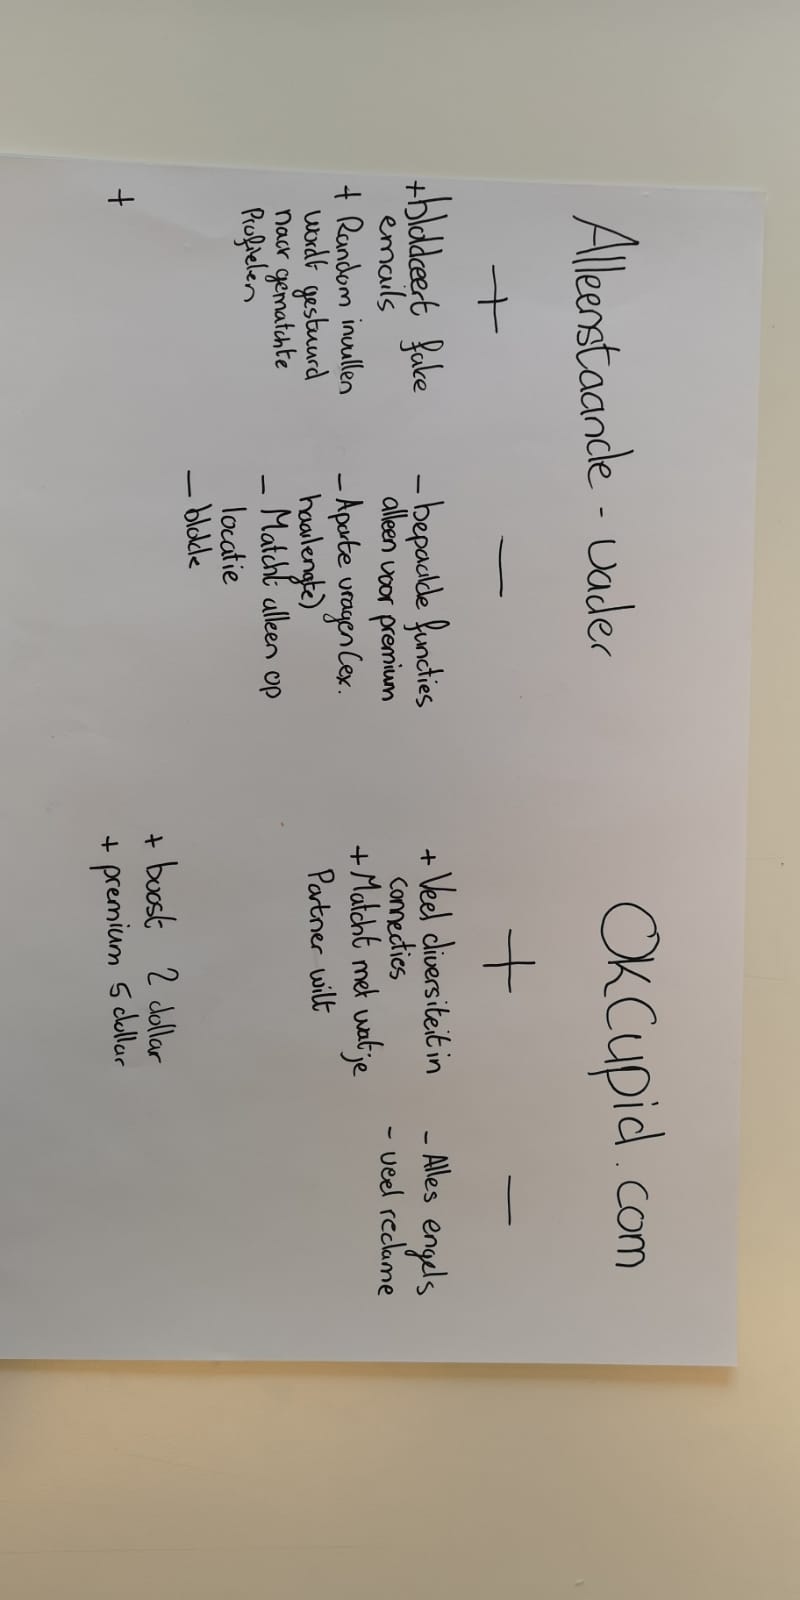 Alleenstaande - vader
+
+ blokkeert fake
emails
+ Random invullen
wordt gestuurd
naar gematchte
Profielen
+
—
- bepaalde functies
alleen voor premium
- Aparte vragen (ex.
haarlengte)
- Matcht alleen op
locatie
- blokk
OkCupid.com
+
+ Veel diversiteit in
connecties
+ Matcht met wat je
Partner wilt
+ boost 2 dollar
+ premium 5 dollar
—
- Alles engels
- veel reclame